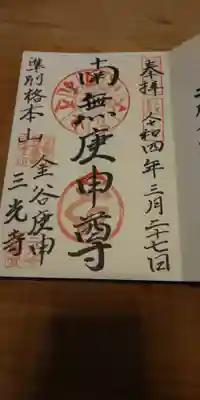 奉拝
令和四年三月二十七日
南無庚申尊
金谷庚申
準別格本山
三光寺